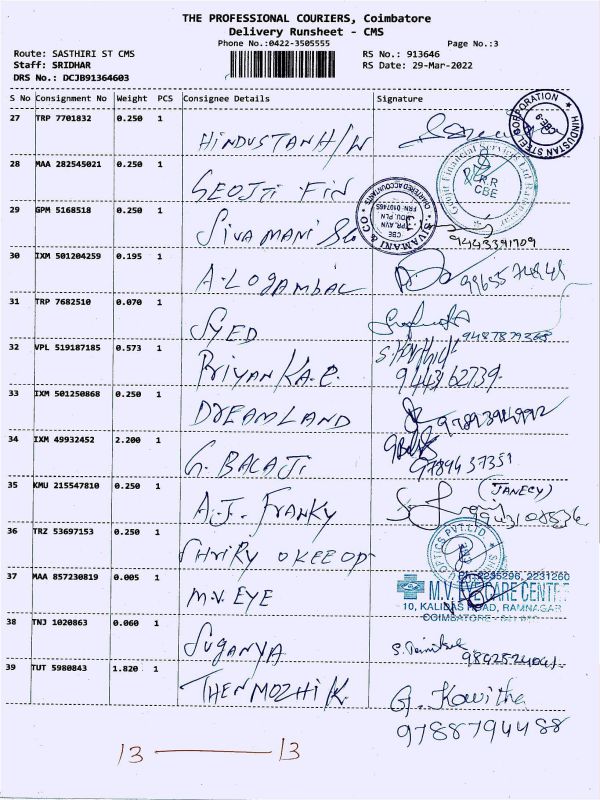 THE PROFESSIONAL COURIERS, Coimbatore
Delivery Runsheet - CMS
Phone No.:0422-3505555
Page No.:3
Route: SASTHIRI ST CMS
RS No.: 913646
Staff: SRIDHAR
RS Date: 29-Mar-2022
DRS No.: DCJB91364603
S No Consignment No Weight PCS Consignee Details Signature
27 TRP 7701832 0.250 1
HINDUSTAN H/W
CORPORATION HINDUSTAN STEEL
28 MAA 282545021 0.250 1
GEOJTI FIN
Geojit Financial Services Ltd
CBE
29 GPM 5168518 0.250 1
SIVAMANI
SIVAMANI & CO
CHARTERED ACCOUNTANTS
FRN: 010746S
CBE
9443391709
30 IXM 501204259 0.195 1
A. LOGAMBAL
31 TRP 7682510 0.070 1
SYED
32 VPL 519187185 0.573 1
PRIYANKA.P.
9443162739
33 IXM 501250868 0.250 1
DREAMLAND
34 IXM 49932452 2.200 1
G. BALAJI
9789437351
35 KMU 215547810 0.250 1
A.J. FRANKY
(JANECY)
9443108536
36 TRZ 53697153 0.250 1
SHRIRY OKEE OP
OPTICS PVT LTD
37 MAA 857230819 0.005 1
M.V. EYE
PH: 2235296, 2231260
M.V. EYECARE CENTRE
10, KALIDAS ROAD, RAMNAGAR
COIMBATORE
38 TNJ 1020863 0.060 1
SUGANYA
39 TUT 5980843 1.820 1
THENMOZHI K.
G. Kawitha
9788794488
13 — 13